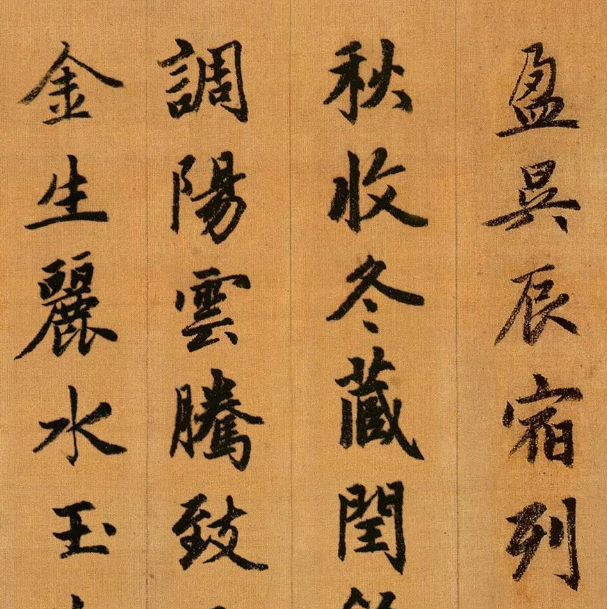 盈昃辰宿列
秋收冬藏閏
調陽雲騰致
金生麗水玉